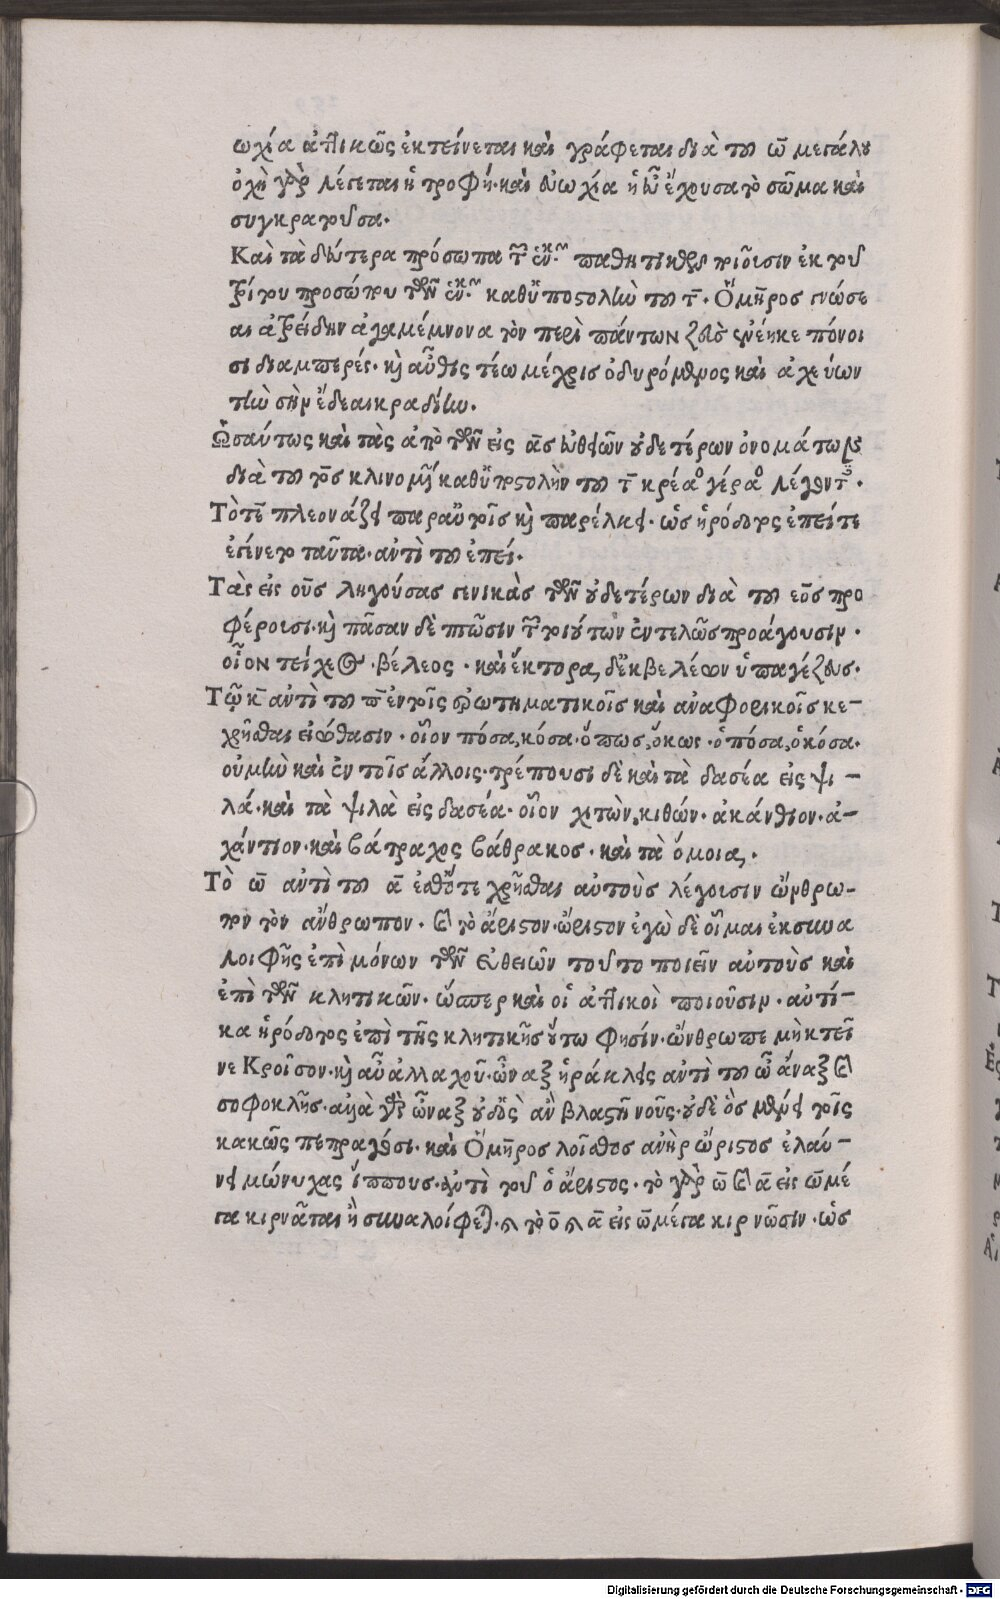 ωχία ἀττικῶς ἐκτείνεται καὶ γράφεται διὰ τοῦ ω̅ μεγάλου
ὀχὴ γὰρ λέγεται ἡ τροφή· καὶ εὐωχία ἡ εὖ ἔχουσα τὸ σῶμα καὶ
συγκρατοῦσα.
Καὶ τὰ δεύτερα πρόσωπα τῶν παθητικῶν ποιοῦσιν ἐκ τοῦ
τρίτου προσώπου τῶν καθ' ὑποστολὴν τοῦ τ̅· Ὅμηρος γνώσε
αι ἀτρείδην ἀγαμέμνονα τὸν περὶ πάντων ζεὺς ἐνέηκε πόνοι
σι διαμπερές· καὶ αὖθις τέω μέχρις ὀδυρόμενος καὶ ἀχεύων
τὴν σὴν ἔδεαι κραδίην.
Ὡσαύτως καὶ τὰς ἀπὸ τῶν εἰς α̅ς εὐθειῶν οὐδετέρων ὀνομάτων
διὰ τοῦ τος κλινομένων καθ' ὑποστολὴν τοῦ τ̅ κρέαος γέραος λέγοντες·
Τὸ τε̅ πλεονάζει παρ' αὐτοῖς καὶ παρέλκει· ὡς ἡρόδοτος ἐπείτε
ἐγίνετο ταῦτα· ἀντὶ τοῦ ἐπεί.
Τὰς εἰς ους ληγούσας γενικὰς τῶν οὐδετέρων διὰ τοῦ εος προ
φέρουσι· καὶ πᾶσαν δὲ πτῶσιν τῶν τοιούτων ἐντελῶς προάγουσιν·
οἷον τείχεος· βέλεος· καὶ ἕκτορα, δ' ἐκ βελέων ὕπαγε ζεύς·
Τῷ κ̅ ἀντὶ τοῦ π̅ ἐν τοῖς ἐρωτηματικοῖς καὶ ἀναφορικοῖς κε-
χρῆσθαι εἰώθασιν· οἷον πόσα, κόσα· ὅπως, ὅκως· ὁπόσα, ὁκόσα·
οὐ μὴν καὶ ἐν τοῖς ἄλλοις· τρέπουσι δὲ καὶ τὰ δασέα εἰς ψι-
λά· καὶ τὰ ψιλὰ εἰς δασέα· οἷον χιτὼν, κιθών· ἀκάνθιον· ἀ-
χάντιον· καὶ βάτραχος βάθρακος· καὶ τὰ ὅμοια,·
Τὸ ω̅ ἀντὶ τοῦ α̅ ἔσθ' ὅτε χρῆσθαι αὐτοὺς λέγουσιν ὤνθρω-
πον τὸν ἄνθρωπον· καὶ τὸ ἄριστον· ὥριστον ἐγὼ δὲ οἶμαι ἐκ συνα
λοιφῆς ἐπὶ μόνων τῶν εὐθειῶν τοῦτο ποιεῖν αὐτοὺς καὶ
ἐπὶ τῶν κλητικῶν· ὥσπερ καὶ οἱ ἀττικοὶ ποιοῦσιν· αὐτί-
κα ἡρόδοτος ἐπὶ τῆς κλητικῆς οὕτω φησίν· ὤνθρωπε μὴ κτεῖ
νε Κροῖσον· καὶ αὖ ἀλλαχοῦ· ὦναξ ἡράκλεις ἀντὶ τοῦ ὦ ἄναξ καὶ
σοφοκλῆς· ἀλλὰ γὰρ ὦναξ οὐδ' ὃς ἂν βλαστῇ νοῦς· οὐδὲ ὃς μένει τοῖς
κακῶς πεπραγόσι· καὶ Ὅμηρος λοῖσθος ἀνὴρ ὥριστος ἐλαύ-
νει μώνυχας ἵππους· ἀντὶ τοῦ ὁ ἄριστος· τὸ γὰρ ω̅ καὶ α̅ εἰς ω̅ μέ
γα κιρνᾶται ἢ συναλοίφεται· καὶ τὸ ο̅ καὶ α̅ εἰς ω̅ μέγα κιρνῶσιν· ὡς
Digitalisierung gefördert durch die Deutsche Forschungsgemeinschaft · DFG